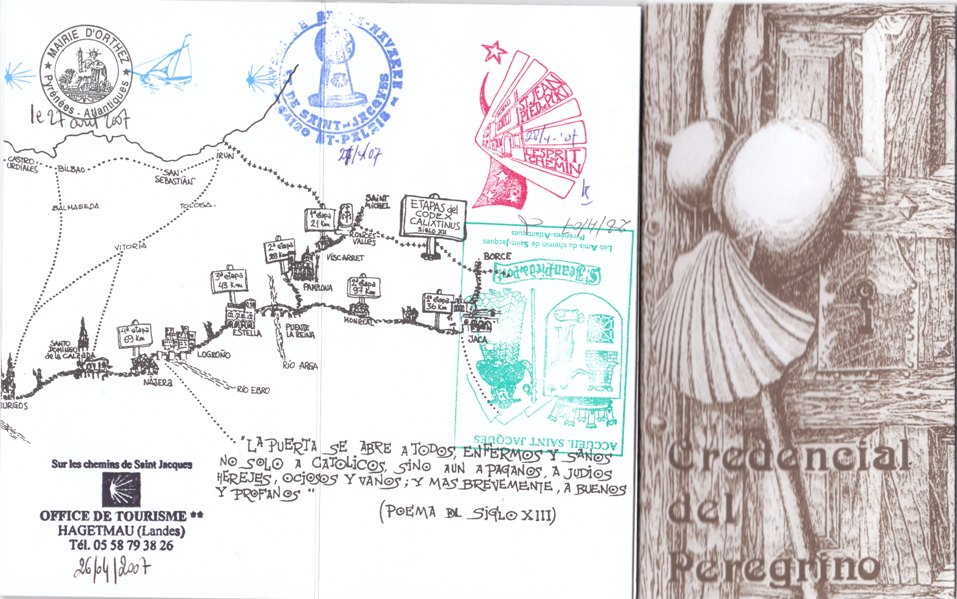 MAIRIE D'ORTHEZ
Pyrénées - Atlantiques
le 27 avril 2007
NAVARRE
DE SAINT-JACQUES
64120 ST-PALAIS
ST JEAN
PIED DE PORT
L'ESPRIT
CHEMIN
CASTRO
URDIALES
BILBAO
SAN
SEBASTIÁN
IRUN
BALMASEDA
TOLOSA
VITORIA
SAINT
MICHEL
1ª etapa
21 Km
RONCES
VALLES
VISCARRET
ETAPAS del
CODEX
CALIXTINUS
SIGLO XII
2ª etapa
PAMPLONA
3ª etapa
43 Km
ESTELLA
PUENTE
LA REINA
2ª etapa
97 Km
MONREAL
1ª etapa
36 Km
BORCE
JACA
Les Amis du chemin de Saint-Jacques
Pyrénées-Atlantiques
St Jean-Pied-de-Port
ACCUEIL SAINT JACQUES
4ª etapa
69 Km
SANTO
DOMINGO
de la CALZADA
NÁJERA
LOGROÑO
RÍO EBRO
RÍO ARGA
BURGOS
"LA PUERTA SE ABRE A TODOS, ENFERMOS Y SANOS
NO SOLO A CATOLICOS, SINO AUN A PAGANOS, A JUDIOS
HEREJES, OCIOSOS Y VANOS; Y MAS BREVEMENTE, A BUENOS
Y PROFANOS"
(POEMA DEL SIGLO XIII)
Sur les chemins de Saint Jacques
OFFICE DE TOURISME **
HAGETMAU (Landes)
Tél. 05 58 79 38 26
26/04/2007
Credencial
del
Peregrino